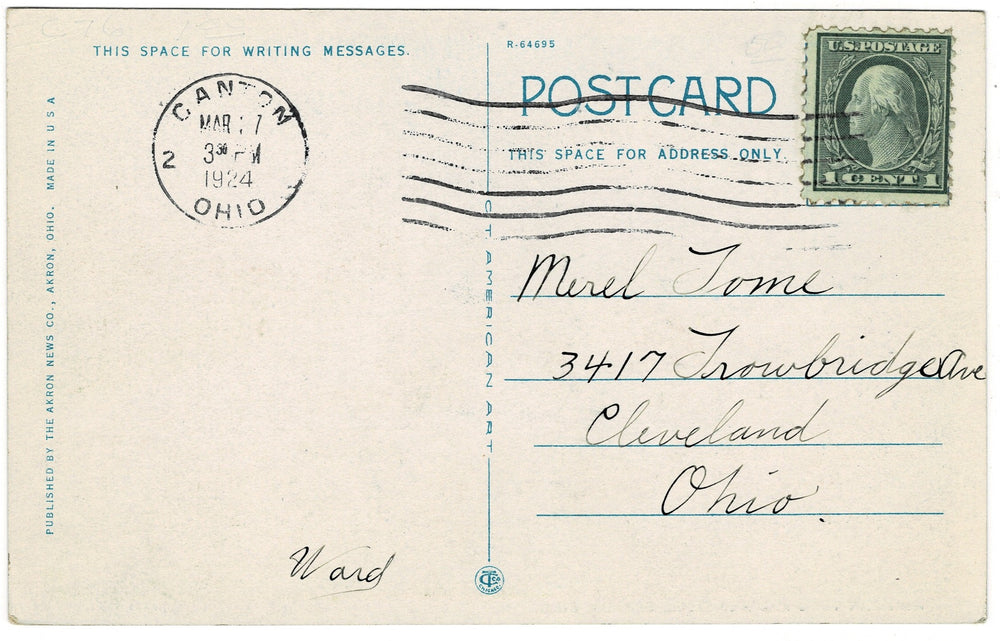 THIS SPACE FOR WRITING MESSAGES.
R-64695
POST CARD
THIS SPACE FOR ADDRESS ONLY.
U.S.POSTAGE
1 CENT 1
CANTON
MAR 7
3 30 PM
1924
2
OHIO
PUBLISHED BY THE AKRON NEWS CO., AKRON, OHIO. MADE IN U S A
C T AMERICAN ART
Merel Tome
3417 Trowbridge Ave
Cleveland
Ohio.
Ward